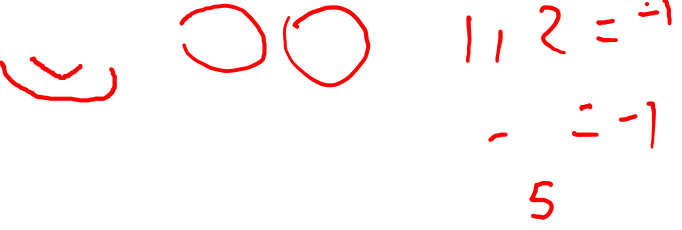 1, 2 = -1
- = -1
5